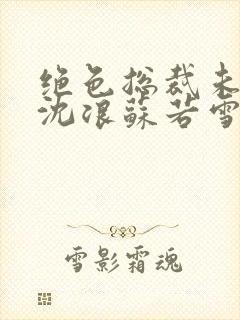 绝色总裁未
沈浪苏若雪
雪影霜魂